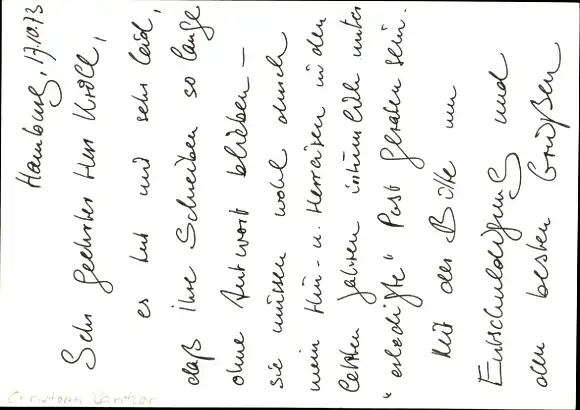 Hamburg, 17.10.73
Sehr geehrter Herr Kröll,
es tut mir sehr leid,
daß Ihre Schreiben so lange
ohne Antwort blieben –
sie müssen wohl durch
mein Hin- u. Herreisen in den
letzten Jahren irrtümlich unter
"erledigte" Post geraten sein.
Mit der Bitte um
Entschuldigung und
den besten Grüßen